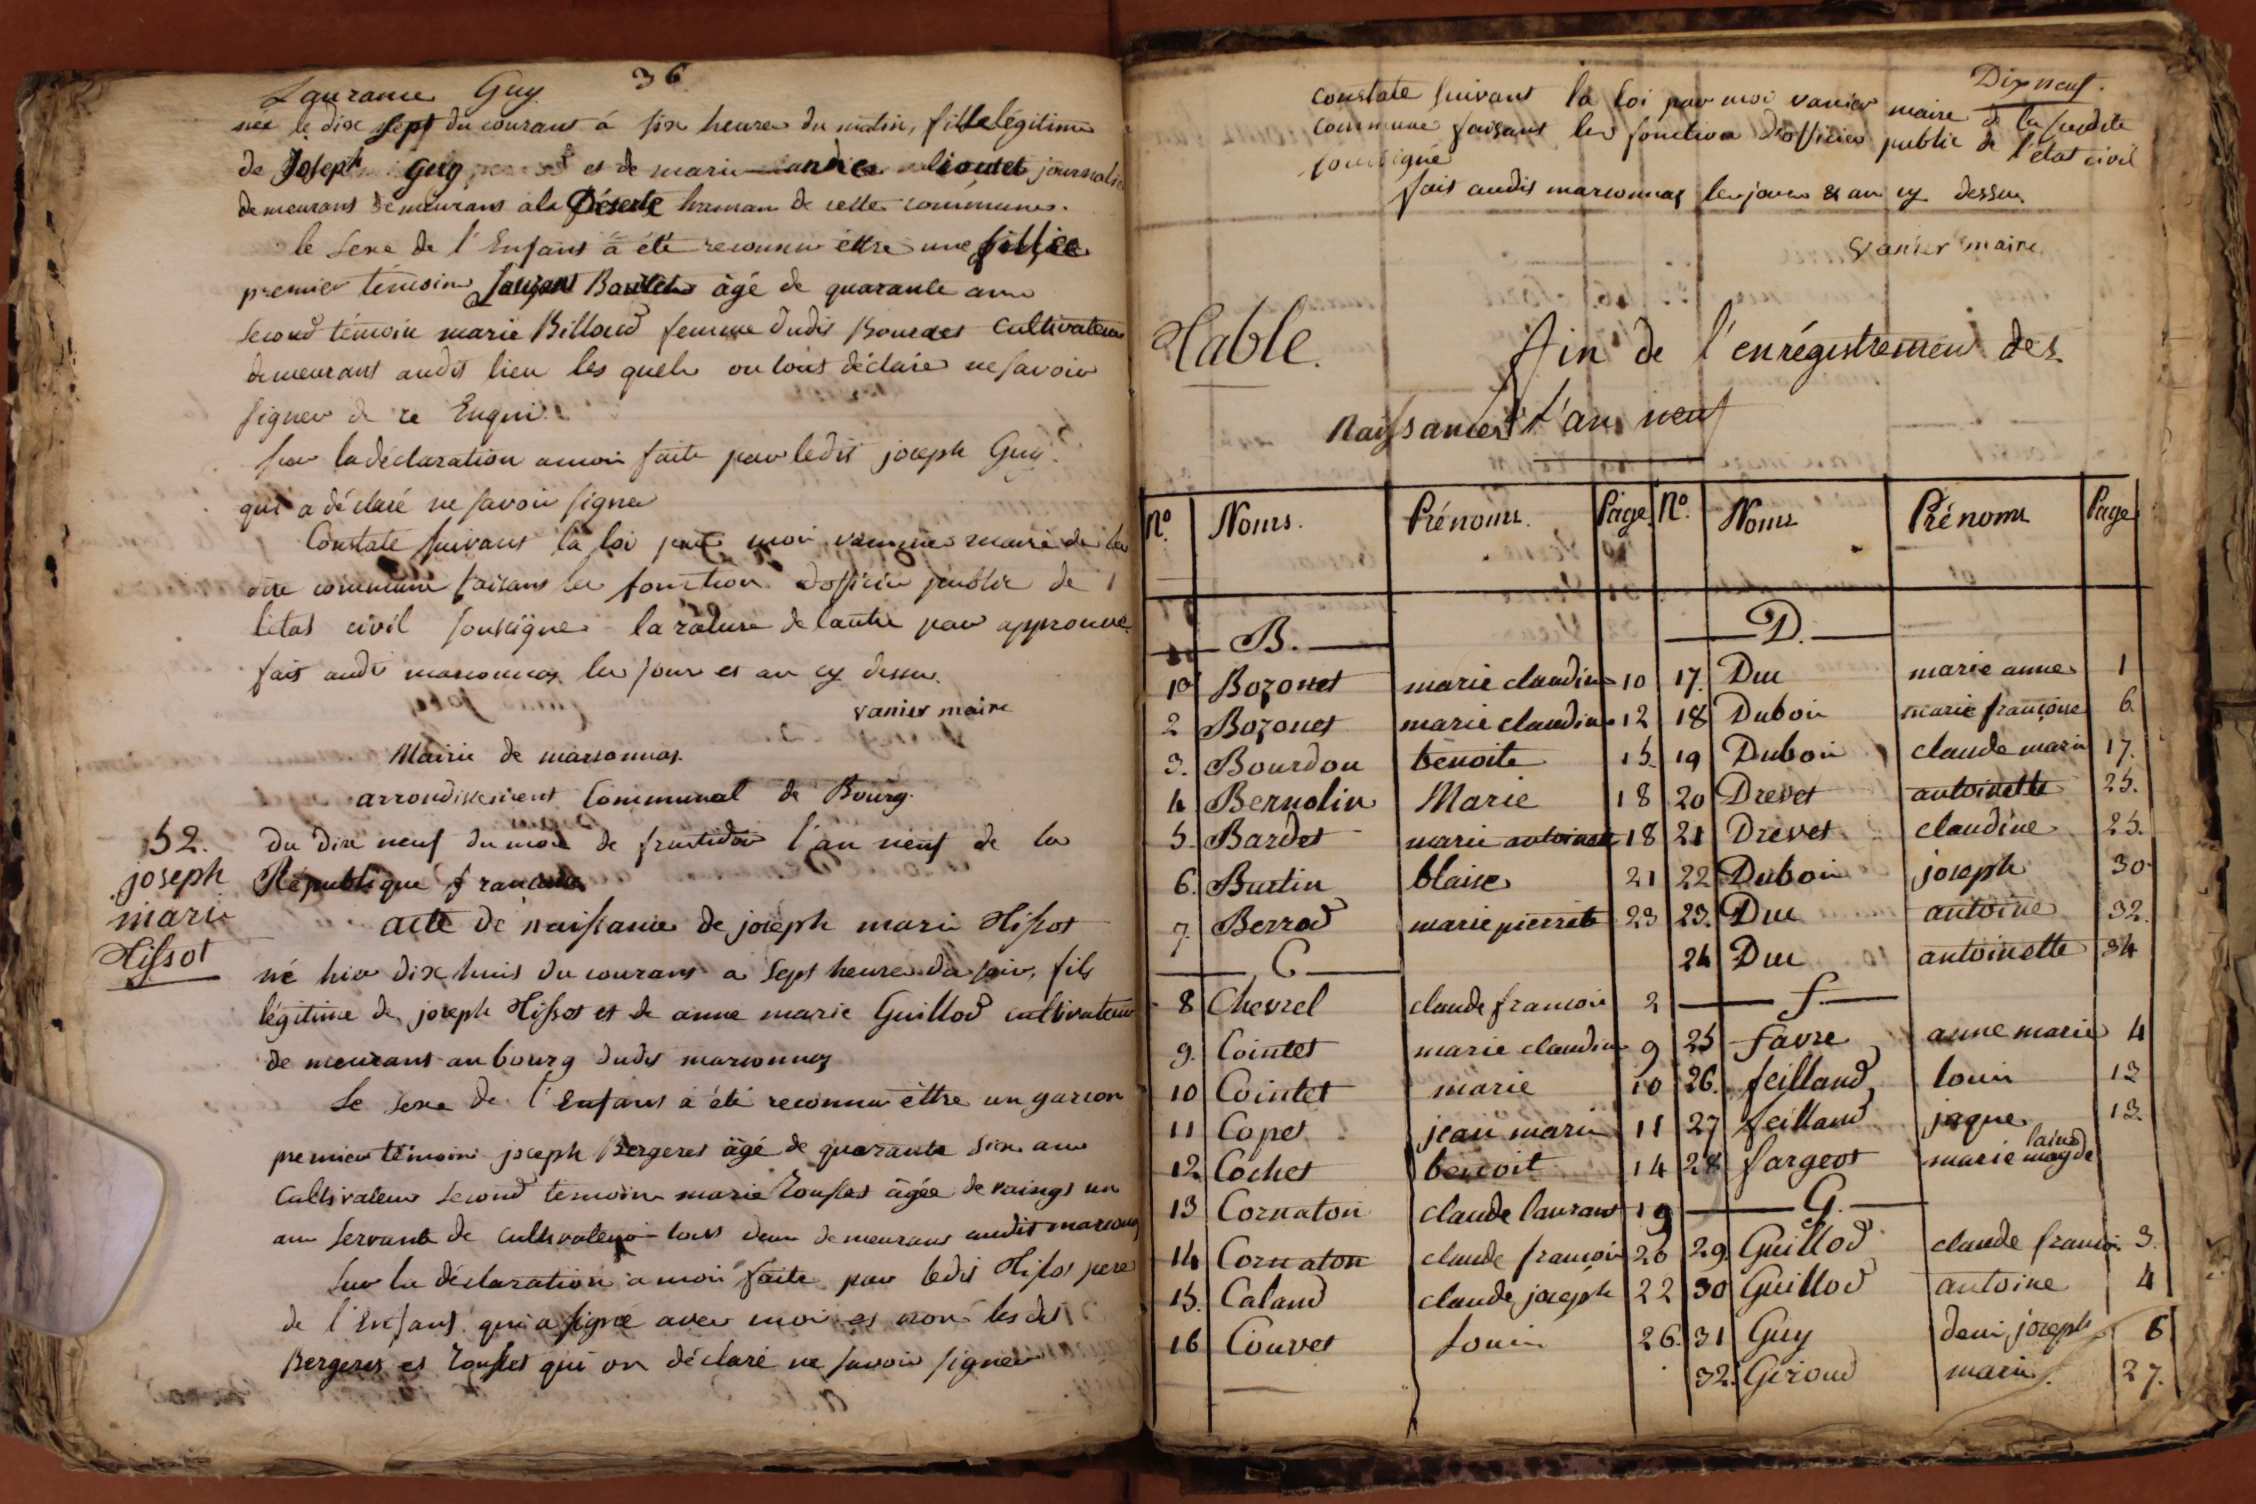 36
Laurance Guy
née le dix sept du courant à six heure du matin, fille légitime
de Joseph Guy et de marie journalier
demeurans demeurans a la Déserte hamau de cette commune.
le Sexe de l'Enfant à été reconnu êttre une fille
premier témoin âgé de quarante ans
Second témoin marie Billoud femme dudit Bourdet Cultivateur
demeurant audit lieu les quels on tous déclaré ne savoir
signer de ce Enquis
Sur la déclaration amoi faite par ledit joseph Guy
qui a déclaré ne savoir signer
Constaté suivant la loi par moi vannier maire de la
dite commune faisant les fonction d'officier public de
létat civil soussigné la rature de lautre par approuvé
fait audit marsonnas les jour et an cy dessus.
vanier maire
Mairie de marsonnas.
arrondissement Communal de Bourg.
52.
joseph
marie
Tissot
du dix neuf du mois de fructidor l'an neuf de la
République francaise
acte de naissance de joseph marie Tissot
né hier dix huit du courant a Sept heure du soir, fils
légitime de joseph Tissot et de anne marie Guillod cultivateur
demeurant au bourg dudit marsonnas
Le Sexe de l'Enfant à été reconnu êttre un garcon
premier témoin joseph Bergeret âgé de quarante six ans
Cultivateur Second temoin marie âgée de vaingt un
an Servante de cultivateur tous deux demeurans audit marsonnas
Sur la déclaration à moi faite par ledit Tissot pere
de l'Enfant qui a signé avec moi et non les dit
Bergeret et qui on déclaré ne savoir signer
Dix neuf.
constaté suivant la loi par moi vanier maire de la susdite
commune faisant les fonction d'officier public de l'état civil
soussigné
fait audit marsonnas les jour & an cy dessus
vanier maire
Table. fin de l'enrégistrement des
Naissances l'an neuf
No. Noms. Prénoms. Page No. Noms Prénoms Page
B. D.
1 Bozonet marie claudine 10 17. Duc marie anne 1
2 Bozonet marie claudine 12 18 Dubois marie françoise 6.
3. Bourdon benoite 15. 19 Dubois claude marie 17.
4 Bernolin Marie 18 20 Drevet antoinette 25.
5. Bardet marie antoinette 18 21 Drevet claudine 25.
6. Burtin blaise 21 22 Dubois joseph 30
7. Berrod marie pierrete 23 23. Duc antoine 32.
C 24 Duc antoinette 34
8 Chevrel claude francois 2 f.
9. Cointet marie claudine 9 25 favre anne marie 4
10 Cointet marie 10 26. feilland louis 13
11 Copet jean marie 11 27 feilland jaque 13.
12 Cochet benoit 14 28 fargeot marie magdelaine
13 Cornaton claude laurant 19 G.
14 Cornaton claude francois 20 29. Guillod claude francois 3.
15. Caland claude joseph 22 30 Guillod antoine 4
16 Couvet Louis 26. 31 Guy deni joseph 6
32. Giroud marie 27.